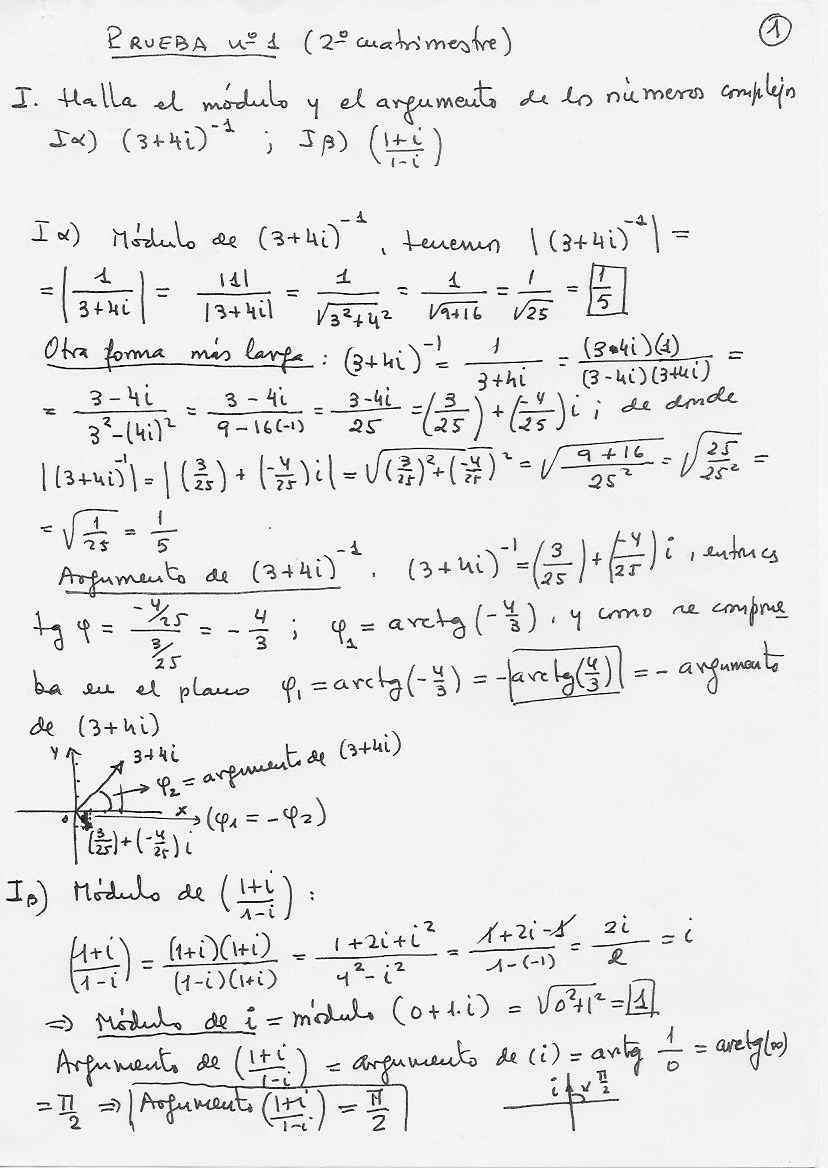 ①
PRUEBA nº 1 (2º cuatrimestre)
I. Halla el módulo y el argumento de los números complejos
Iα) (3+4i)^-1 ; Iβ) ((1+i)/(1-i))
Iα) Módulo de (3+4i)^-1, tenemos |(3+4i)^-1| =
= |1/(3+4i)| = |1|/|3+4i| = 1/√(3²+4²) = 1/√(9+16) = 1/√25 = 1/5
Otra forma más larga: (3+4i)^-1 = 1/(3+4i) = (3-4i)(1)/((3-4i)(3+4i)) =
= (3-4i)/(3²-(4i)²) = (3-4i)/(9-16(-1)) = (3-4i)/25 = (3/25) + (-4/25)i ; de donde
|(3+4i)^-1| = |(3/25) + (-4/25)i| = √((3/25)²+(-4/25)²) = √((9+16)/25²) = √(25/25²) =
= √(1/25) = 1/5
Argumento de (3+4i)^-1. (3+4i)^-1 = (3/25) + (-4/25)i, entonces
tg φ = (-4/25)/(3/25) = -4/3 ; φ₁ = arctg(-4/3), y como se comprue
ba en el plano φ₁ = arctg(-4/3) = -arctg(4/3) = - argumento
de (3+4i)
Y 3+4i
φ₂ = argumento de (3+4i)
0 x (φ₁ = -φ₂)
(3/25) + (-4/25)i
Iβ) Módulo de ((1+i)/(1-i)) :
((1+i)/(1-i)) = (1+i)(1+i)/((1-i)(1+i)) = (1+2i+i²)/(1²-i²) = (1+2i-1)/(1-(-1)) = 2i/2 = i
⇒ Módulo de i = módulo (0+1·i) = √(0²+1²) = 1
Argumento de ((1+i)/(1-i)) = argumento de (i) = artg 1/0 = arctg(∞)
= π/2 ⇒ Argumento ((1+i)/(1-i)) = π/2
i π/2